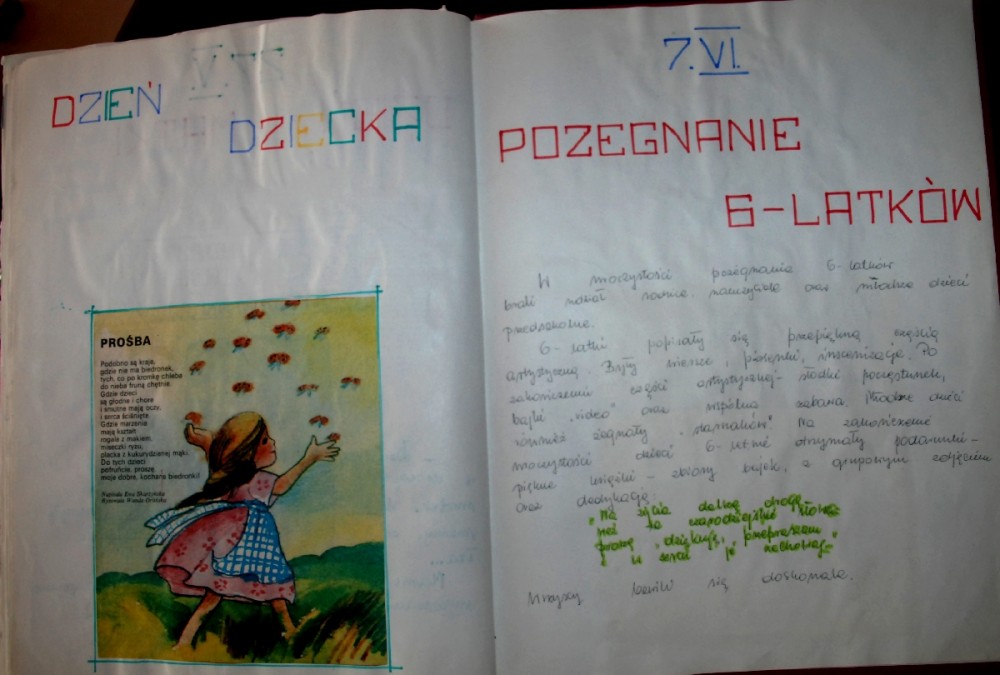 DZIEŃ
DZIECKA
PROŚBA
Podobno są kraje,
gdzie nie ma biedronek,
tych, co po kromkę chleba
do nieba fruną chętnie.
Gdzie dzieci
są głodne i chore
i smutne mają oczy,
i serca ściśnięte.
Gdzie marzenia
mają kształt
rogala z makiem,
miseczki ryżu,
placka z kukurydzianej mąki.
Do tych dzieci
pofruńcie, proszę,
moje dobre, kochane biedronki!
7.VI.
POZEGNANIE
6-LATKÒW
W uroczystości pożegnania 6-latków
brali udział rodzice, nauczyciele oraz młodsze dzieci
przedszkolne.
6-latki popisały się przepiękną częścią
artystyczną. Były wiersze, piosenki, inscenizacje. Po
zakończeniu części artystycznej - słodki poczęstunek,
bajki "video" oraz wspólna zabawa. Młodsze dzieci
również żegnały "starszaków". Na zakończenie
uroczystości dzieci 6-letnie otrzymały podarunki -
piękne książki - zbiory bajek, z grupowym zdjęciem
oraz dedykacją:
"Na życia daleką drogę
weź te czarodziejskie słowa
proszę, dziękuję, przepraszam
i w sercu je zachowaj"
Wszyscy bawili się doskonale.